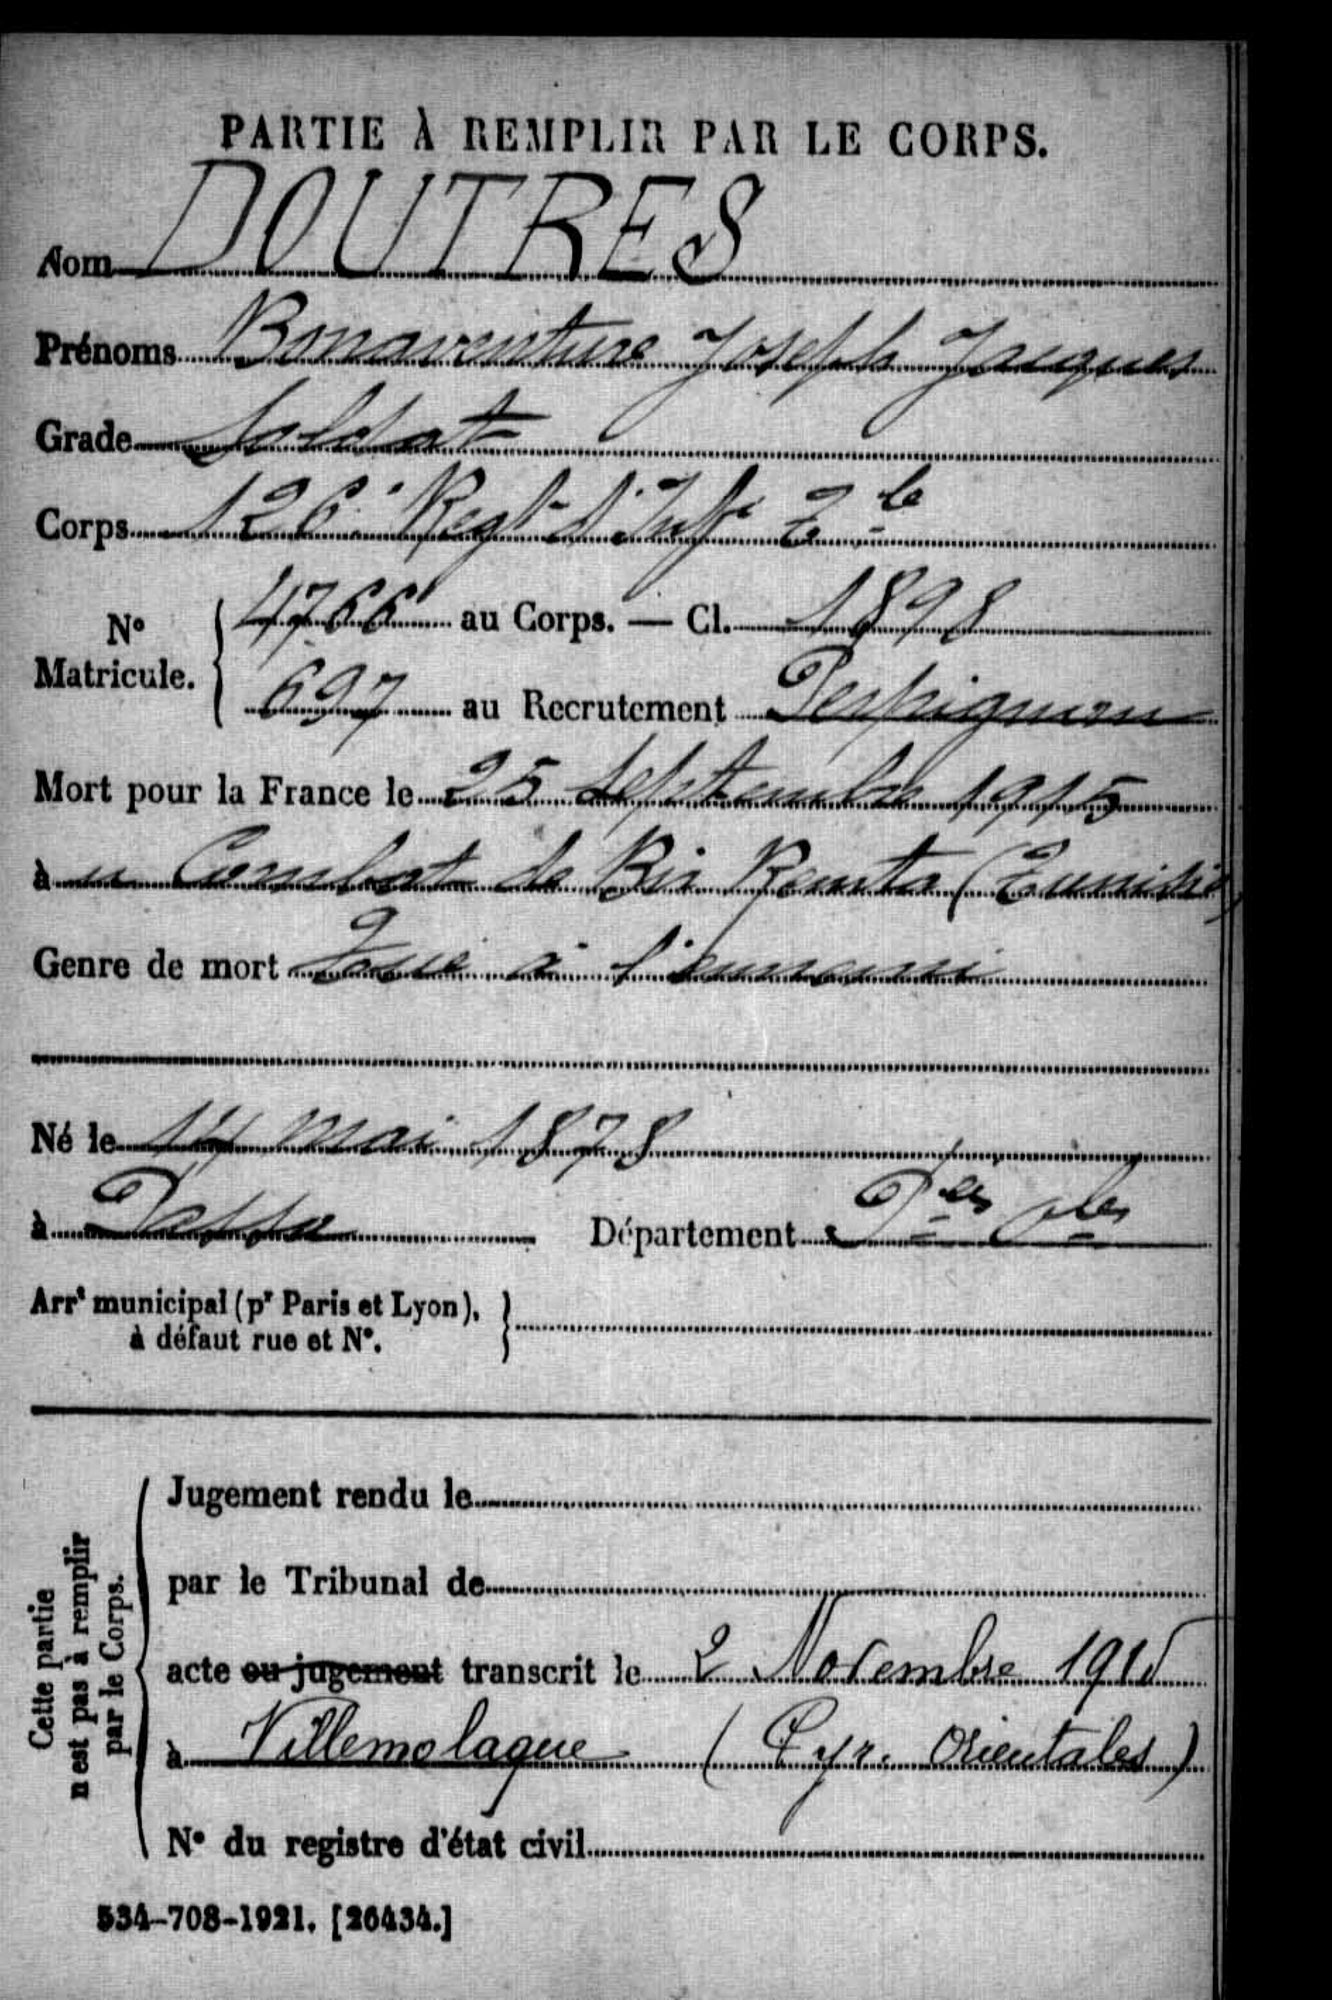 PARTIE À REMPLIR PAR LE CORPS.
Nom DOUTRES
Prénoms Bonaventure Joseph Jacques
Grade Soldat
Corps 126e Regt d'Infie Tle
N° Matricule. 4766 au Corps. — Cl. 1898
697 au Recrutement Perpignan
Mort pour la France le 25 Septembre 1915
à u Combat de Bir Remta (Tunisie)
Genre de mort Tué à l'ennemi
Né le 14 mai 1878
à Passa Département Pées Oles
Arrt municipal (pr Paris et Lyon),
à défaut rue et N°.
Cette partie
n'est pas à remplir
par le Corps.
Jugement rendu le
par le Tribunal de
acte ou jugement transcrit le 2 Novembre 1915
à Villemolaque (Pyr. Orientales)
N° du registre d'état civil
534-708-1921. [26434.]